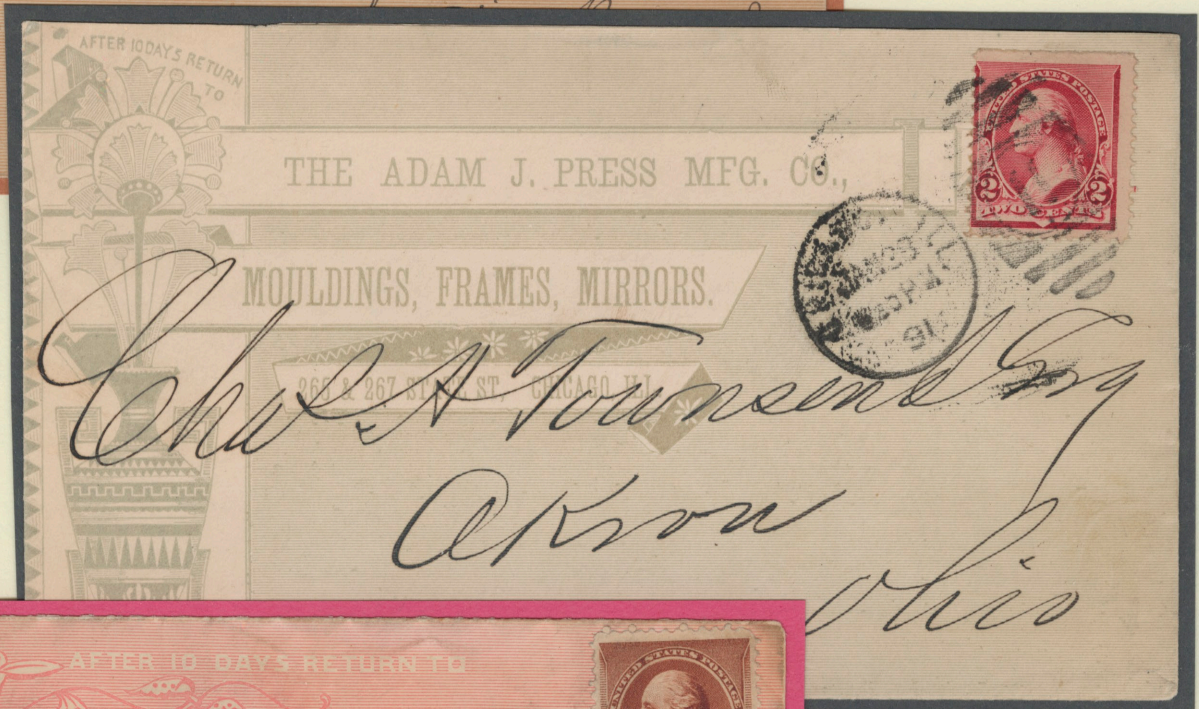 AFTER 10 DAYS RETURN
TO
THE ADAM J. PRESS MFG. CO.,
MOULDINGS, FRAMES, MIRRORS.
265 & 267 STATE ST, CHICAGO, ILL.
UNITED STATES POSTAGE
2 2
TWO CENTS
CHICAGO, ILL.
JAN 23
PM
91
Chas. A Townsend Esq
Akron
Ohio
AFTER 10 DAYS RETURN TO
UNITED STATES POSTAGE